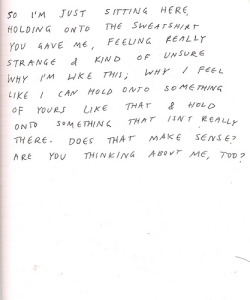 SO I'M JUST SITTING HERE,
HOLDING ONTO THE SWEATSHIRT
YOU GAVE ME, FEELING REALLY
STRANGE & KIND OF UNSURE
WHY I'M LIKE THIS; WHY I FEEL
LIKE I CAN HOLD ONTO SOMETHING
OF YOURS LIKE THAT & HOLD
ONTO SOMETHING THAT ISN'T REALLY
THERE. DOES THAT MAKE SENSE?
ARE YOU THINKING ABOUT ME, TOO?